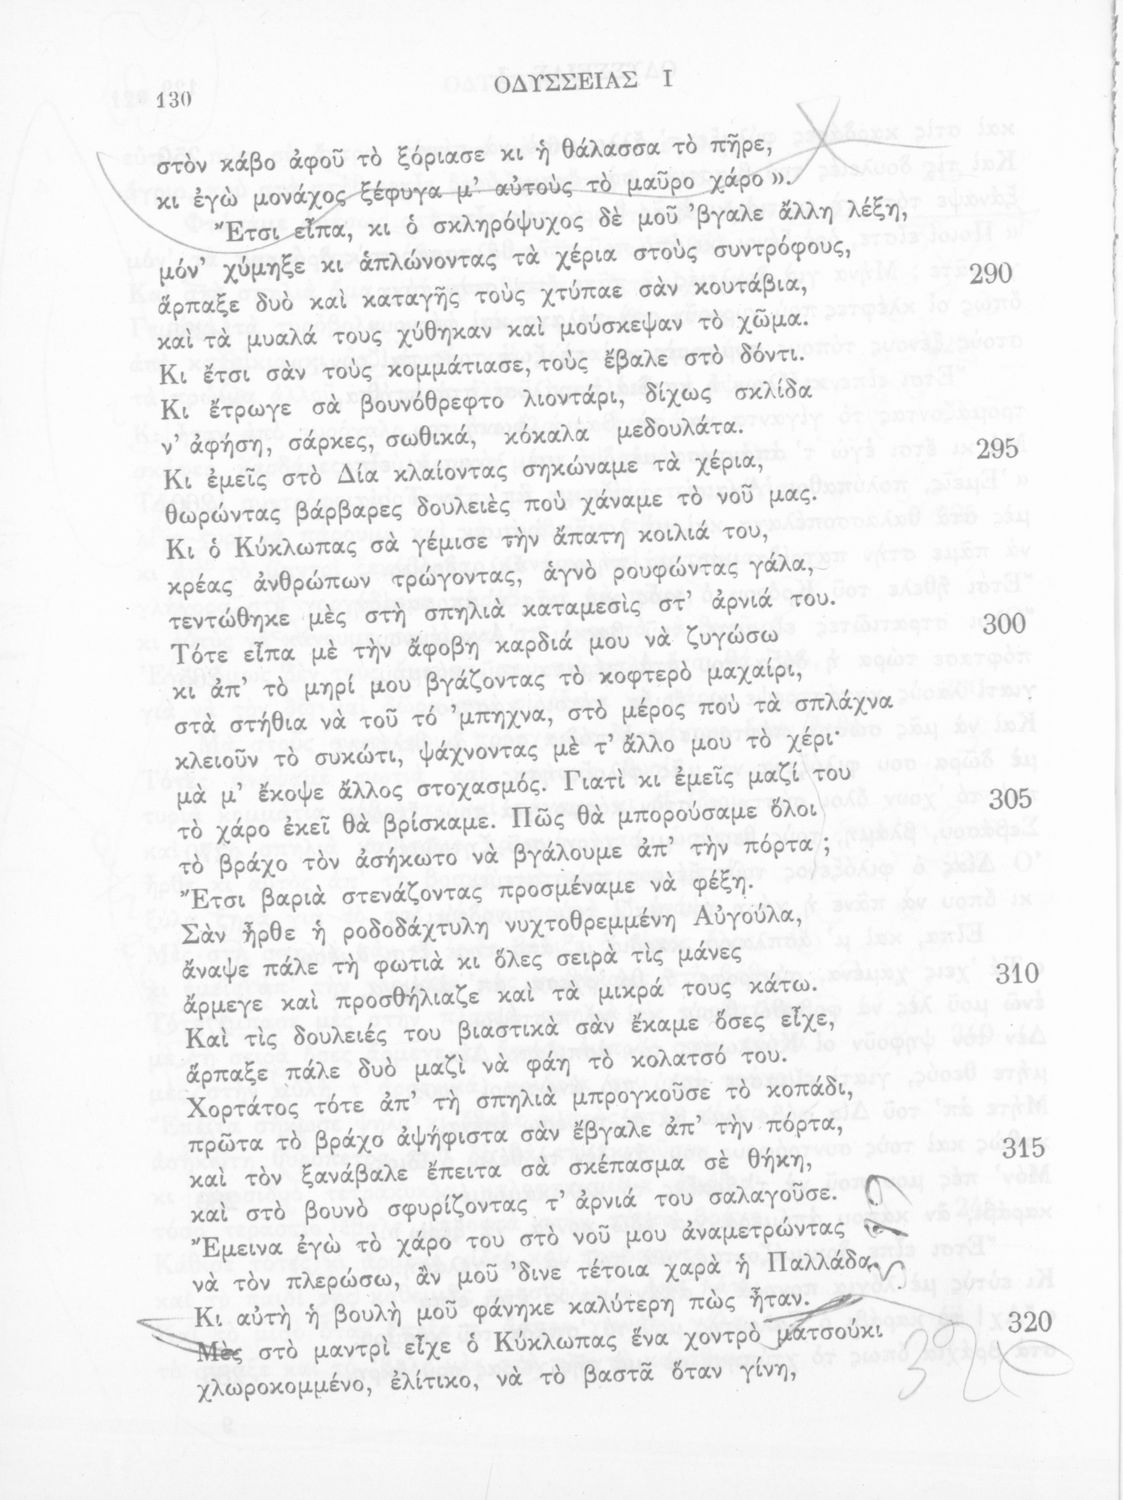 130
ΟΔΥΣΣΕΙΑΣ Ι
στὸν κάβο ἀφοῦ τὸ ξόριασε κι ἡ θάλασσα τὸ πῆρε,
κι ἐγὼ μονάχος ξέφυγα μ' αὐτοὺς τὸ μαῦρο χάρο».
Ἔτσι εἶπα, κι ὁ σκληρόψυχος δὲ μοῦ 'βγαλε ἄλλη λέξη,
μόν' χύμηξε κι ἁπλώνοντας τὰ χέρια στοὺς συντρόφους,
ἅρπαξε δυὸ καὶ καταγῆς τοὺς χτύπαε σὰν κουτάβια, 290
καὶ τὰ μυαλά τους χύθηκαν καὶ μούσκεψαν τὸ χῶμα.
Κι ἔτσι σὰν τοὺς κομμάτιασε, τοὺς ἔβαλε στὸ δόντι.
Κι ἔτρωγε σὰ βουνόθρεφτο λιοντάρι, δίχως σκλίδα
ν' ἀφήση, σάρκες, σωθικά, κόκαλα μεδουλάτα.
Κι ἐμεῖς στὸ Δία κλαίοντας σηκώναμε τὰ χέρια, 295
θωρώντας βάρβαρες δουλειὲς ποὺ χάναμε τὸ νοῦ μας.
Κι ὁ Κύκλωπας σὰ γέμισε τὴν ἄπατη κοιλιά του,
κρέας ἀνθρώπων τρώγοντας, ἁγνὸ ρουφώντας γάλα,
τεντώθηκε μὲς στὴ σπηλιὰ καταμεσὶς στ' ἀρνιά του.
Τότε εἶπα μὲ τὴν ἄφοβη καρδιά μου νὰ ζυγώσω 300
κι ἀπ' τὸ μηρί μου βγάζοντας τὸ κοφτερὸ μαχαίρι,
στὰ στήθια νὰ τοῦ τό 'μπηχνα, στὸ μέρος ποὺ τὰ σπλάχνα
κλειοῦν τὸ συκώτι, ψάχνοντας μὲ τ' ἄλλο μου τὸ χέρι·
μὰ μ' ἔκοψε ἄλλος στοχασμός. Γιατὶ κι ἐμεῖς μαζί του
τὸ χάρο ἐκεῖ θὰ βρίσκαμε. Πῶς θὰ μπορούσαμε ὅλοι 305
τὸ βράχο τὸν ἀσήκωτο νὰ βγάλουμε ἀπ' τὴν πόρτα ;
Ἔτσι βαριὰ στενάζοντας προσμέναμε νὰ φέξη.
Σὰν ἦρθε ἡ ροδοδάχτυλη νυχτοθρεμμένη Αὐγούλα,
ἄναψε πάλε τὴ φωτιὰ κι ὅλες σειρὰ τὶς μάνες
ἄρμεγε καὶ προσθήλιαζε καὶ τὰ μικρά τους κάτω. 310
Καὶ τὶς δουλειές του βιαστικὰ σὰν ἔκαμε ὅσες εἶχε,
ἅρπαξε πάλε δυὸ μαζὶ νὰ φάη τὸ κολατσό του.
Χορτάτος τότε ἀπ' τὴ σπηλιὰ μπρογκοῦσε τὸ κοπάδι,
πρῶτα τὸ βράχο ἀψήφιστα σὰν ἔβγαλε ἀπ' τὴν πόρτα,
καὶ τὸν ξανάβαλε ἔπειτα σὰ σκέπασμα σὲ θήκη, 315
καὶ στὸ βουνὸ σφυρίζοντας τ' ἀρνιά του σαλαγοῦσε.
Ἔμεινα ἐγὼ τὸ χάρο του στὸ νοῦ μου ἀναμετρώντας
νὰ τὸν πλερώσω, ἂν μοῦ 'δινε τέτοια χαρὰ ἡ Παλλάδα.
Κι αὐτὴ ἡ βουλὴ μοῦ φάνηκε καλύτερη πὼς ἦταν.
Μὲς στὸ μαντρὶ εἶχε ὁ Κύκλωπας ἕνα χοντρὸ ματσούκι 320
χλωροκομμένο, ἐλίτικο, νὰ τὸ βαστᾶ ὅταν γίνη,